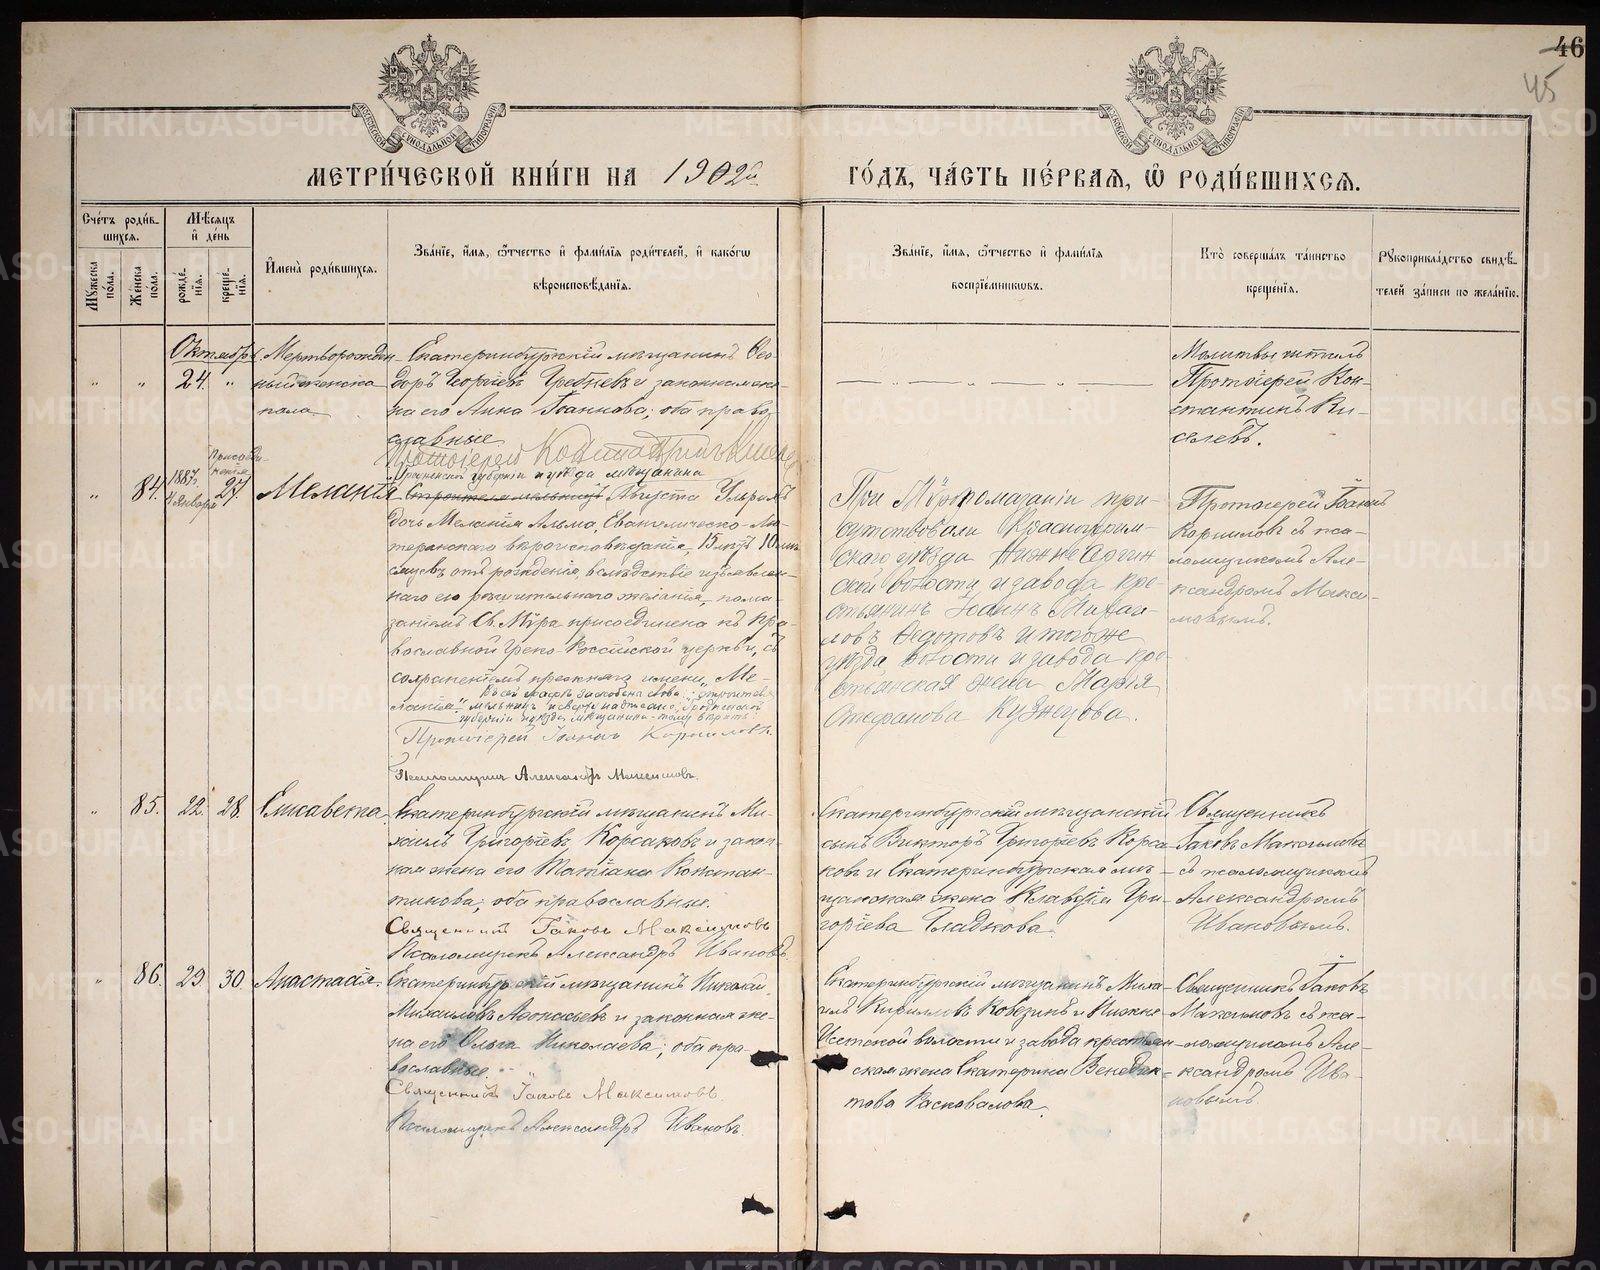 46
45
МЕТРИ́ЧЕСКОЙ КНИ́ГИ НА 1902й
ГО́ДЪ, ЧА́СТЬ ПЕ́РВАЯ, Ѡ РОДИ́ВШИХСЯ.
Сче́тъ роди́в-
шихся.
Му́жеска
по́ла.
Же́нска
по́ла.
Мѣ́сяцъ
и де́нь
рожде́-
нія.
креще́-
нія.
Имена̀ роди́вшихся.
Зва́ніе, и́мя, ѻ́тчество и фами́лія роди́телей, и како́гѡ
вѣроисповѣ́данія.
Зва́ніе, и́мя, ѻ́тчество и фами́лія
воспріе́мниковъ.
Кто̀ соверша́лъ та́инство
креще́нія.
Рукоприкла́дство свидѣ́-
телей за́писи по жела́нію.
Октябрь
24.
Мертворожден-
ный женска
пола
Екатеринбургскій мѣщанинъ Ѳео-
доръ Георгіевъ Гребневъ и законная же-
на его Анна Іоаннова; оба право-
славные.
Протоіерей
Молитвы читалъ
Протоіерей Кон-
стантинъ Ки-
селевъ.
84.
1887 г.
4 Января
27.
Меланія
Гродненской губерніи и уѣзда мѣщанина
Строителя мельницъ Августа Ульрихъ
дочь Меланія Альма, Евангелическо-Лю-
теранскаго вѣроисповѣданія, 15 лѣтъ 10 мѣ-
сяцевъ отъ рожденія, вслѣдствіе изъявлен-
наго ею рѣшительнаго желанія, пома-
заніемъ Св. Мѵра присоединена къ Пра-
вославной Греко-Россійской церкви, съ
сохраненіемъ прежняго имени „Ме-
ланія“.
Въ сей графѣ зачеркнуто слова: „строителя
мельницъ“ и сверху надписано: „Гродненской
губерніи и уѣзда мѣщанина“ - тому вѣрить.
Протоіерей Іоаннъ Корниловъ.
Псаломщикъ Александръ Максимовъ.
При Мѵропомазаніи при-
сутствовали Красноуфим-
скаго уѣзда Нижне Сергин
ской волости и завода кре-
стьянинъ Іоаннъ Михаи-
ловъ Ѳедотовъ и того же
уѣзда, волости и завода кре-
стьянская жена Марія
Стефанова Кузнецова.
Протоіерей Іоаннъ
Корниловъ съ пса-
ломщикомъ Але-
ксандромъ Макси-
мовымъ.
85.
22.
28.
Елисавета
Екатеринбургскій мѣщанинъ Ми-
хаилъ Григоріевъ Корсаковъ и закон-
ная жена его Татіана Констан-
тинова; оба православные.
Священникъ Іаковъ Максимовъ
Псаломщикъ Александръ Ивановъ.
Екатеринбургскій мѣщанскій
сынъ Викторъ Григоріевъ Корса-
ковъ и Екатеринбургская мѣ-
щанская жена Клавдія Гри-
горіева Гладкова.
Священникъ
Іаковъ Максимовъ
съ псаломщикомъ
Александромъ
Ивановымъ.
86.
29
30.
Анастасія.
Екатеринбургскій мѣщанинъ Николай
Михаиловъ Аѳонасьевъ и законная же-
на его Ольга Николаева; оба пра-
вославные.
Священникъ Іаковъ Максимовъ.
Псаломщикъ Александръ Ивановъ.
Екатеринбургскій мѣщанинъ Миха-
илъ Кирилловъ Ковезинъ и Нижне
Исетской волости и завода крестьян-
ская жена Екатерина Венедик-
това Расковалова.
Священникъ Іаковъ
Максимовъ съ пса-
ломщикомъ Але-
ксандромъ Ива-
новымъ.
METRIKI.GASO-URAL.RU